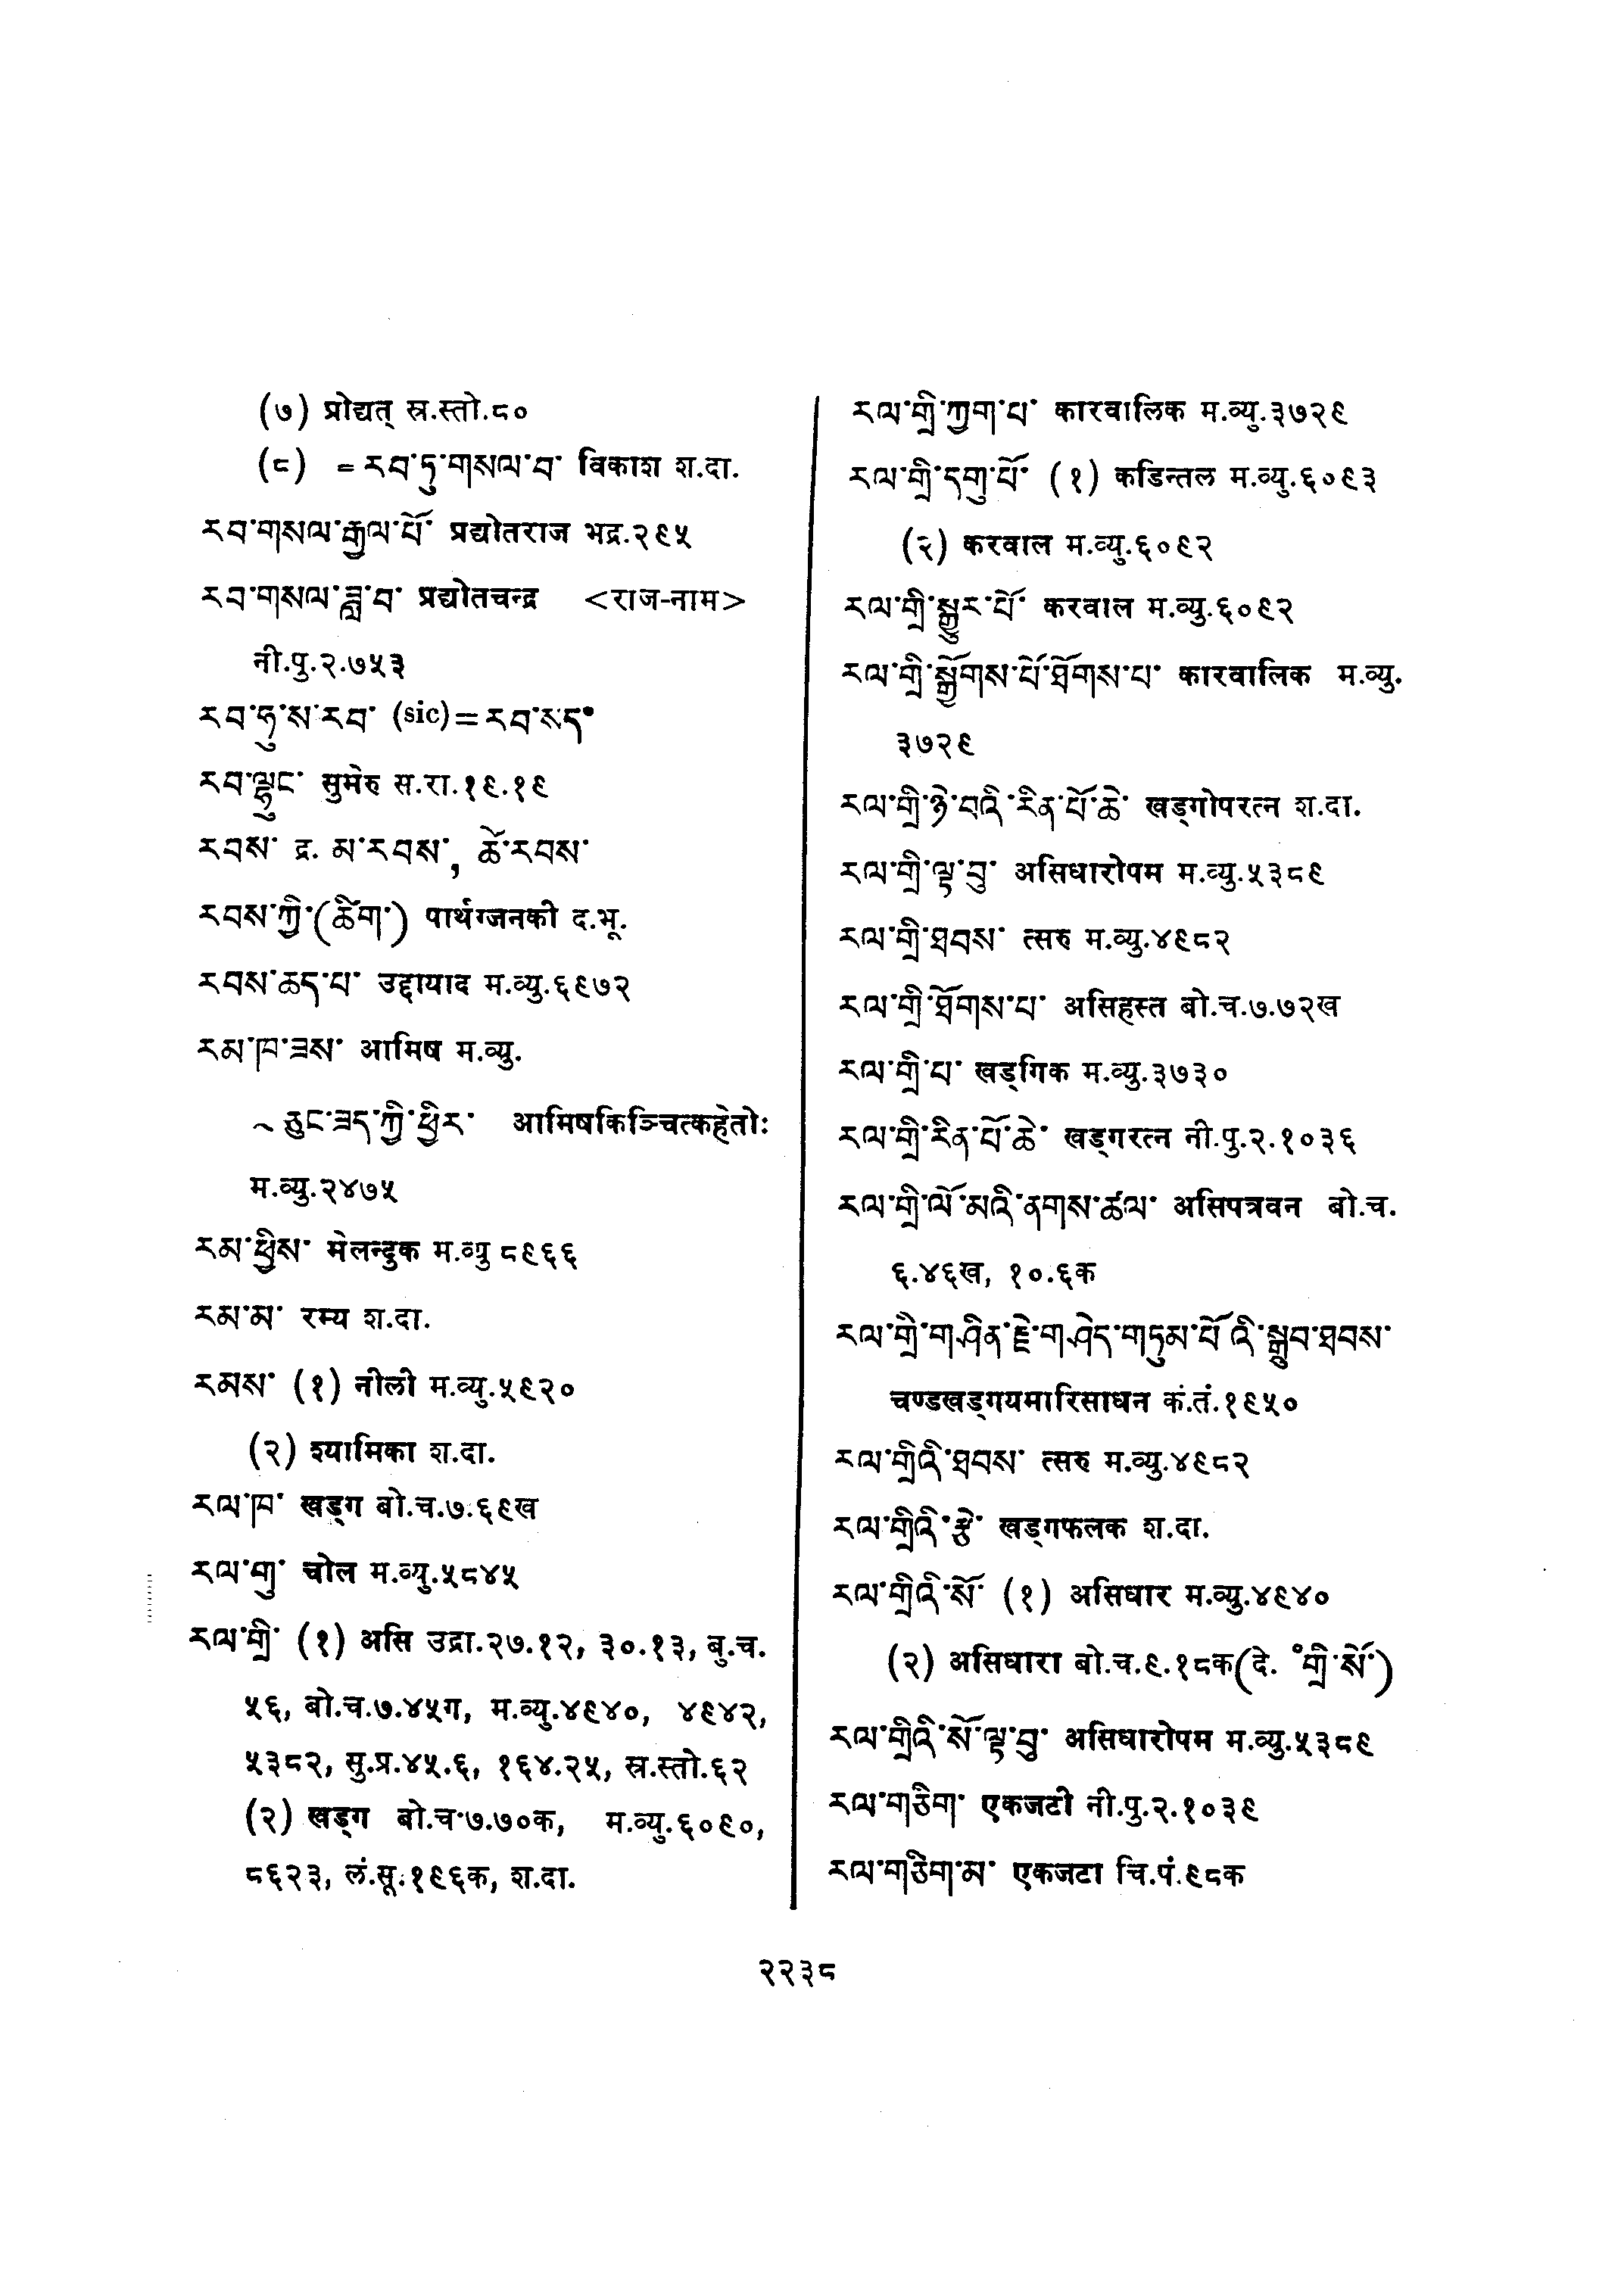 (७) प्रोद्यत् स्र.स्तो.८०
(८) = རབ་ཏུ་གསལ་བ་ विकाश श.दा.
རབ་གསལ་རྒྱལ་པོ་ प्रद्योतराज भद्र.२९५
རབ་གསལ་ཟླ་བ་ प्रद्योतचन्द्र <राज-नाम>
नी.पु.२.७५३
རབ་ཧུ་ས་རབ་ (sic)=རབ་སད་
རབ་ལྷུང་ सुमेरु स.रा.१९.१९
རབས་ द्र. མ་རབས་, ཆོ་རབས་
རབས་ཀྱི་(ཚིག་) पार्थग्जनकी द.भू.
རབས་ཆད་པ་ उद्दायाद म.व्यु.६९७२
རམ་ཁ་ཟས་ आमिष म.व्यु.
~ ཅུང་ཟད་ཀྱི་ཕྱིར་ आमिषकिञ्चित्कहेतोः
म.व्यु.२४७५
རམ་ཕྱིས་ मेलन्दुक म.व्यु ८९६६
རམ་མ་ रम्य श.दा.
རམས་ (१) नीली म.व्यु.५९२०
(२) श्यामिका श.दा.
རལ་ཁ་ खड्ग बो.च.७.६९ख
རལ་གུ་ चोल म.व्यु.५८४५
རལ་གྲི་ (१) असि उद्रा.२७.१२, ३०.१३, बु.च.
५६, बो.च.७.४५ग, म.व्यु.४९४०, ४९४२,
५३८२, सु.प्र.४५.६, १६४.२५, स्र.स्तो.६२
(२) खड्ग बो.च.७.७०क, म.व्यु.६०९०,
८६२३, लं.सू.१९६क, श.दा.
རལ་གྲི་ཀྱག་པ་ कारवालिक म.व्यु.३७२९
རལ་གྲི་དགུ་པོ་ (१) कडिन्तल म.व्यु.६०९३
(२) करवाल म.व्यु.६०९२
རལ་གྲི་སྒྱུར་པོ་ करवाल म.व्यु.६०९२
རལ་གྲི་སྒྱོགས་པོ་ཐོགས་པ་ कारवालिक म.व्यु.
३७२९
རལ་གྲི་ཉེ་བའི་རིན་པོ་ཆེ་ खड्गोपरत्न श.दा.
རལ་གྲི་ལྟ་བུ་ असिधारोपम म.व्यु.५३८९
རལ་གྲི་ཐབས་ त्सरु म.व्यु.४९८२
རལ་གྲི་ཐོགས་པ་ असिहस्त बो.च.७.७२ख
རལ་གྲི་པ་ खड्गिक म.व्यु.३७३०
རལ་གྲི་རིན་པོ་ཆེ་ खड्गरत्न नी.पु.२.१०३६
རལ་གྲི་ལོ་མའི་ནགས་ཚལ་ असिपत्रवन बो.च.
६.४६ख, १०.६क
རལ་གྲི་གཤིན་རྗེ་གཤེད་གཏུམ་པོའི་སྒྲུབ་ཐབས་
चण्डखड्गयमारिसाधन कं.तं.१९५०
རལ་གྲིའི་ཐབས་ त्सरु म.व्यु.४९८२
རལ་གྲིའི་རྩེ་ खड्गफलक श.दा.
རལ་གྲིའི་སོ་ (१) असिधार म.व्यु.४९४०
(२) असिधारा बो.च.९.१८क(दे. °གྲི་སོ་)
རལ་གྲིའི་སོ་ལྟ་བུ་ असिधारोपम म.व्यु.५३८९
རལ་གཅིག་ एकजटी नी.पु.२.१०३९
རལ་གཅིག་མ་ एकजटा चि.पं.९८क
२२३८